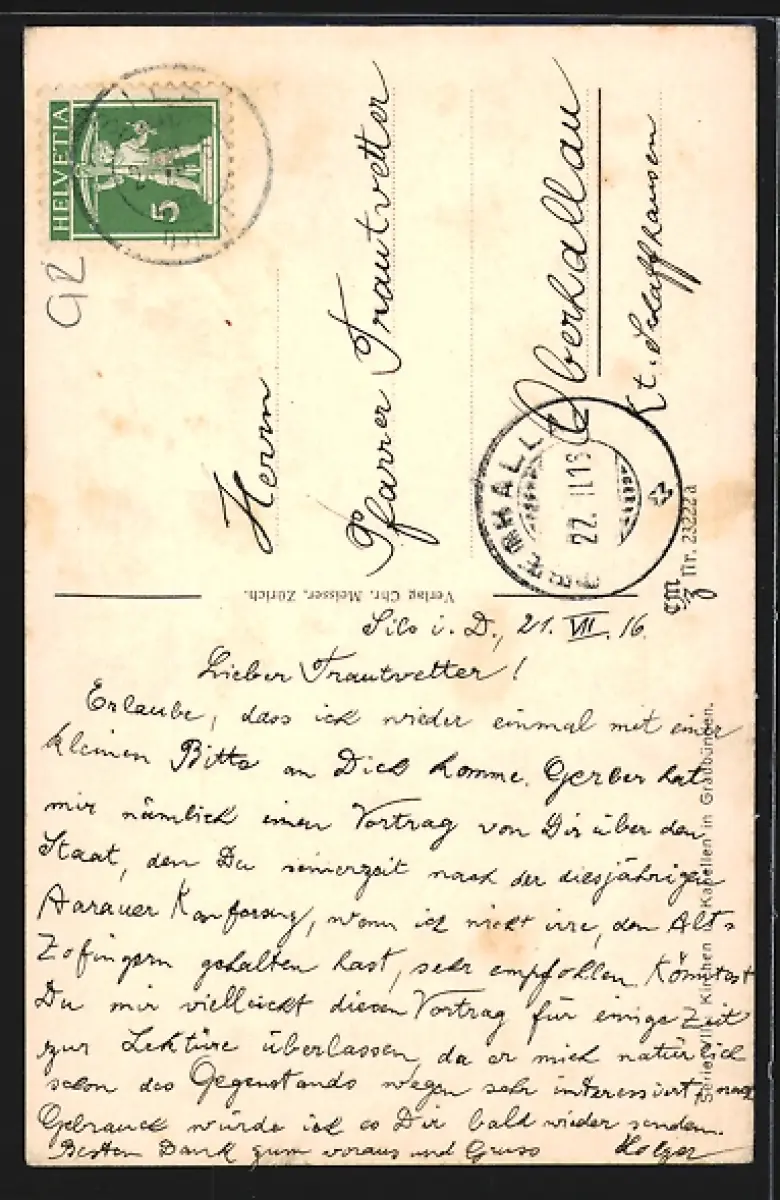 HELVETIA
5
GR
Herrn
Pfarrer Trautvetter
Oberhallau
Kt. Schaffhausen
22. II
Nr. 23222 a
Verlag Chr. Meisser, Zürich.
Serie VII. Kirchen Kapellen in Graubünden.
Sils i. D., 21. VII. 16.
Lieber Trautvetter!
Erlaube, dass ich wieder einmal mit einer
kleinen Bitte an Dich komme. Gerber hat
mir nämlich einen Vortrag von Dir über den
Staat, den Du seinerzeit nach der diesjährigen
Aarauer Konferenz, wenn ich nicht irre, den Alt-
Zofingern gehalten hast, sehr empfohlen. Könntest
Du mir vielleicht diesen Vortrag für einige Zeit
zur Lektüre überlassen, da er mich natürlich
schon des Gegenstands wegen sehr interessiert, nach
Gebrauch würde ich es Dir bald wieder senden.
Besten Dank zum voraus und Gruss Holger